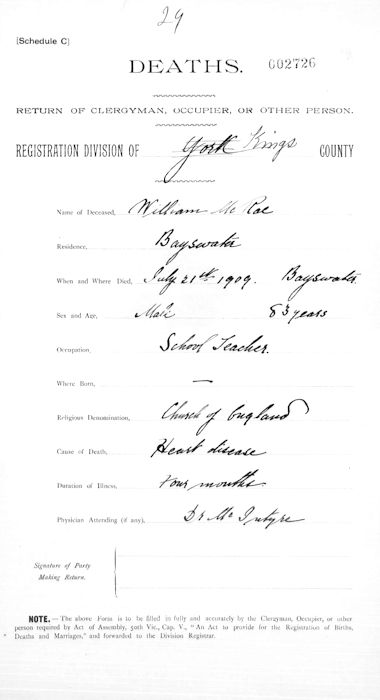 29
[Schedule C]
DEATHS. 002726
RETURN OF CLERGYMAN, OCCUPIER, OR OTHER PERSON.
REGISTRATION DIVISION OF York Kings COUNTY
Name of Deceased, William Mc Rae
Residence, Bayswater
When and Where Died, July 21st 1909. Bayswater
Sex and Age, Male 83 years
Occupation, School Teacher.
Where Born, —
Religious Denomination, Church of England
Cause of Death, Heart disease
Duration of Illness, Four months
Physician Attending (if any), Dr Mc Intyre
Signature of Party
Making Return.
NOTE.—The above Form is to be filled in fully and accurately by the Clergyman, Occupier, or other
person required by Act of Assembly, 50th Vic., Cap. V., "An Act to provide for the Registration of Births,
Deaths and Marriages," and forwarded to the Division Registrar.